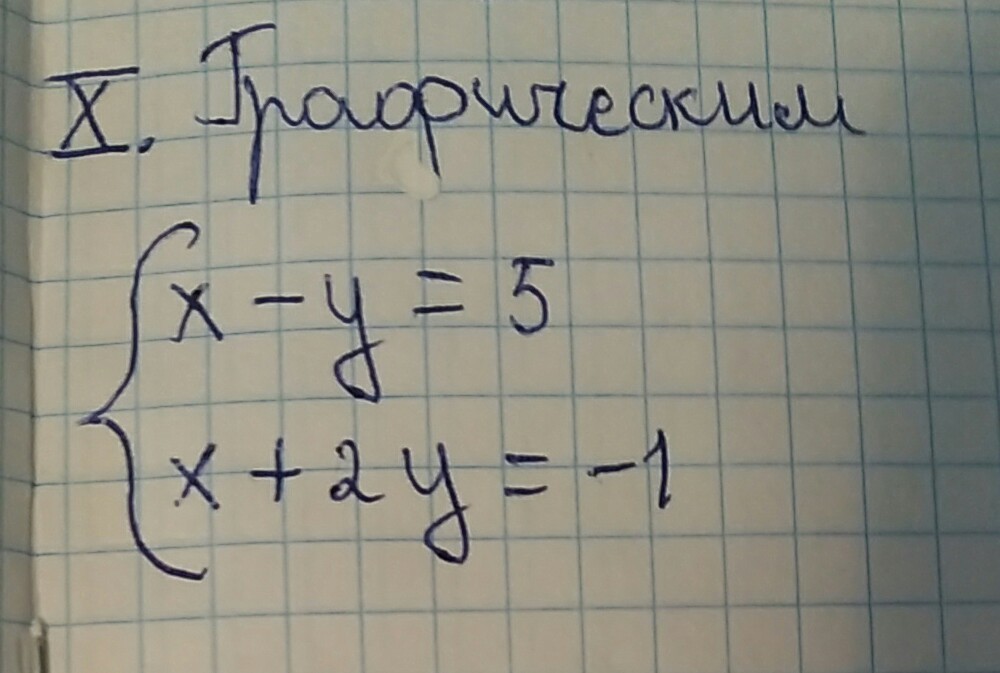 X. Графическим
x - y = 5
x + 2y = -1